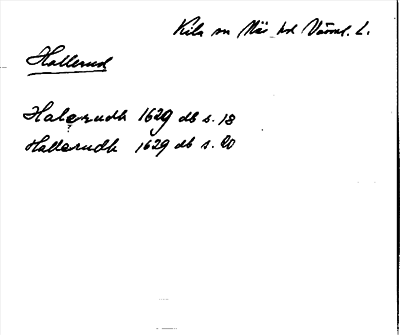 Kila sn Näs hd Värml. L.
Hallerud
Halerudh 1629 db s. 18
Hallerudh 1629 db s. 20